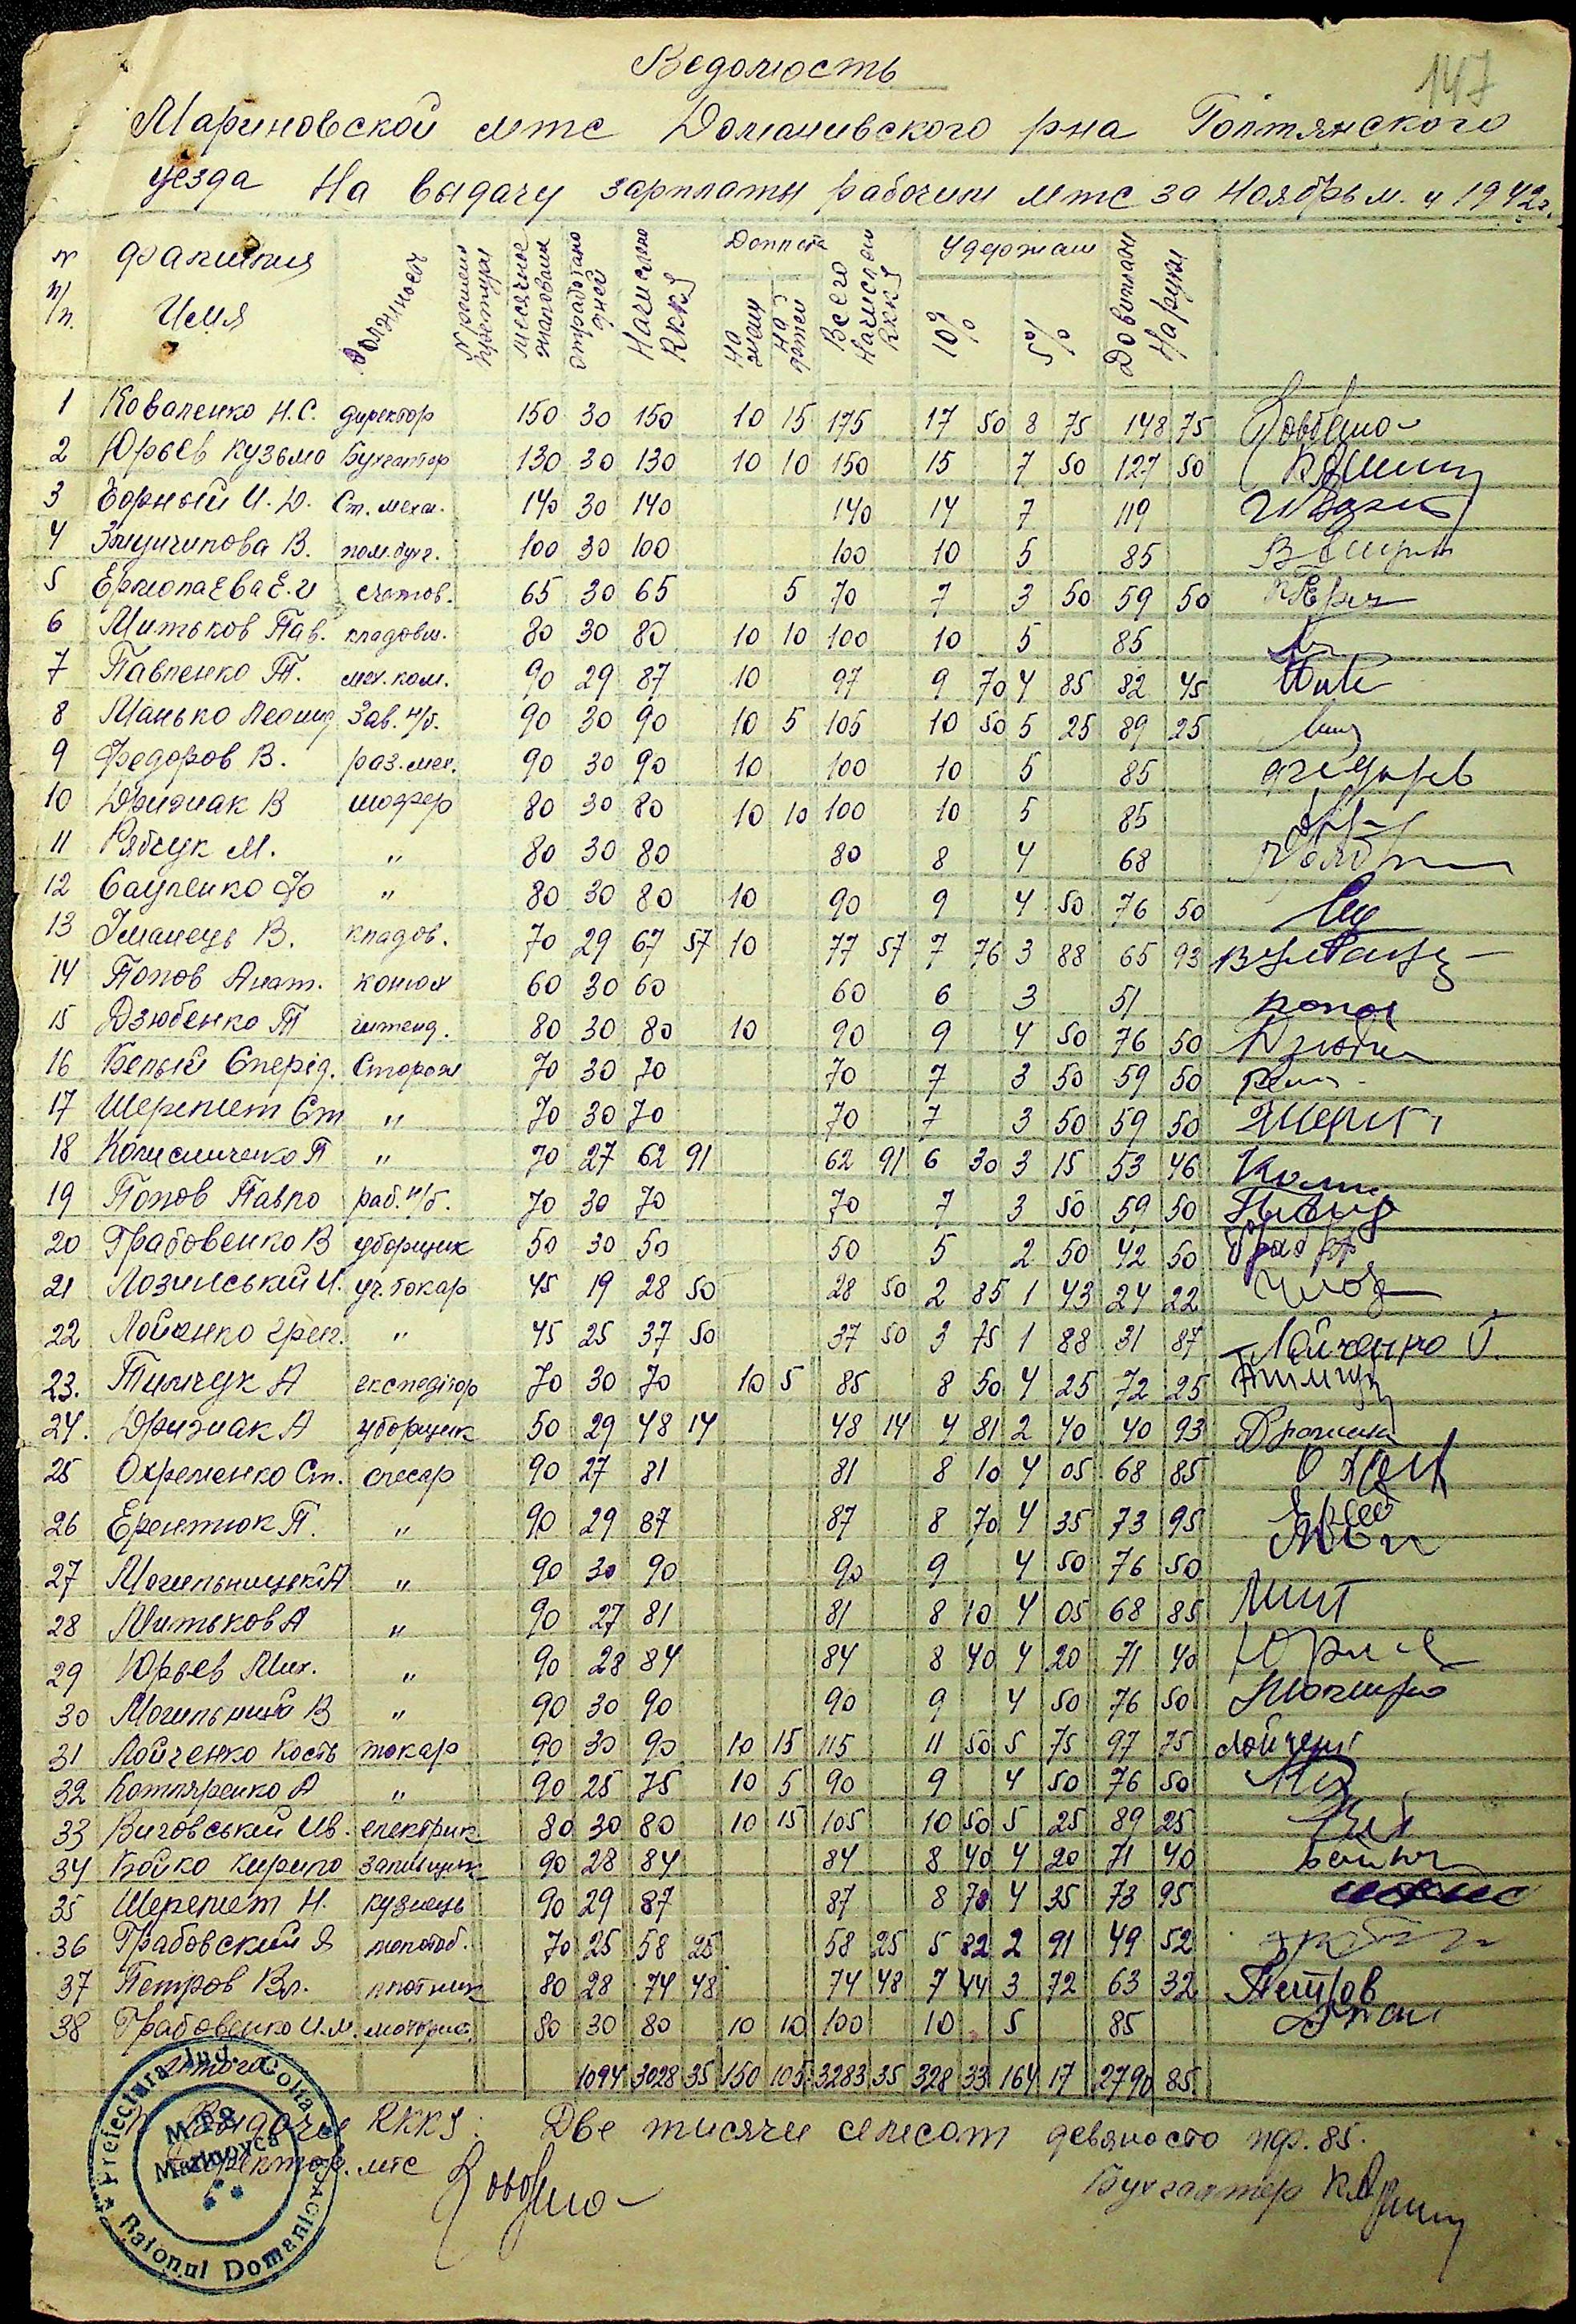 147
Ведомость
Мариновской мтс Доманивского рна Голтянского
уезда На выдачу зарплаты рабочим мтс за Ноябрь м. ц 1942г.
№ п/п. Фамилия Имя Должность месячное жалование отработано дней Начислено RKKS Доплата На жену На детей Всего Начислено RKKS Удержан 10% 5% До выплаты На руки
1 Коваленко Н.С. директор 150 30 150 10 15 175 17 50 8 75 148 75
2 Юрьев Кузьма Бухгалтер 130 30 130 10 10 150 15 7 50 127 50
3 Борный И.D. Ст. механ. 140 30 140 140 14 7 119
4 В. пом. бухг. 100 30 100 100 10 5 85
5 Ермолаева Е.И счетов. 65 30 65 5 70 7 3 50 59 50
6 Митьков Пав. кладовщ. 80 30 80 10 10 100 10 5 85
7 Павленко Т. мех. ком. 90 29 87 10 97 9 70 4 85 82 45
8 Манько Леонид Зав. н/б. 90 30 90 10 5 105 10 50 5 25 89 25
9 Федоров В. раз. мех. 90 30 90 10 100 10 5 85
10 Дрижак В шофер 80 30 80 10 10 100 10 5 85
11 Рябчук М. " 80 30 80 80 8 4 68
12 Сауленко Ф " 80 30 80 10 90 9 4 50 76 50
13 В. кладов. 70 29 67 57 10 77 57 7 76 3 88 65 93
14 Попов Анат. конюх 60 30 60 60 6 3 51 Попов
15 Дзюбенко Т 80 30 80 10 90 9 4 50 76 50
16 Белый Сперід. Сторож 70 30 70 70 7 3 50 59 50
17 Шеремет Ст " 70 30 70 70 7 3 50 59 50
18 Колисниченко П " 70 27 62 91 62 91 6 30 3 15 53 46
19 Попов Павло раб. н/б. 70 30 70 70 7 3 50 59 50
20 Грабовенко В уборщик 50 30 50 50 5 2 50 42 50
21 Лозинський И. уч. токар 45 19 28 50 28 50 2 85 1 43 24 22
22 Лойченко Грег. " 45 25 37 50 37 50 3 75 1 88 31 87 Лойченко
23. Тимчук А експедітор 70 30 70 10 5 85 8 50 4 25 72 25
24. Дрижак А уборщик 50 29 48 14 48 14 4 81 2 40 40 93
25 Охременко Ст. слесар 90 27 81 81 8 10 4 05 68 85
26 Ерентюк П. " 90 29 87 87 8 70 4 35 73 95
27 Могильницкий А " 90 30 90 90 9 4 50 76 50
28 Митьков А " 90 27 81 81 8 10 4 05 68 85
29 Юрьев Мих. " 90 28 84 84 8 40 4 20 71 40
30 В " 90 30 90 90 9 4 50 76 50
31 Лойченко Кость токар 90 30 90 10 15 115 11 50 5 75 97 75
32 Котляренко А " 90 25 75 10 5 90 9 4 50 76 50
33 Виговський Ив. електрик 80 30 80 10 15 105 10 50 5 25 89 25
34 Бойко Кирило 90 28 84 84 8 40 4 20 71 40
35 Шеремет Н. кузнець 90 29 87 87 8 70 4 35 73 95
36 Грабовский Я молотоб. 70 25 58 25 58 25 5 82 2 91 49 52
37 Петров Вл. плотник 80 28 74 48 74 48 7 44 3 72 63 32 Петров
38 Грабовенко И.М. моторист. 80 30 80 10 10 100 10 5 85
Итого 1094 3028 35 150 105 3283 35 328 33 164 17 2790 85
К Выдаче RKKS: Две тисячи семсот девяносто пф. 85.
Директор. мтс
Бухгалтер
Prefectura Jud. Golta
Raionul Domaniovca
M.T.S.
Marinovca